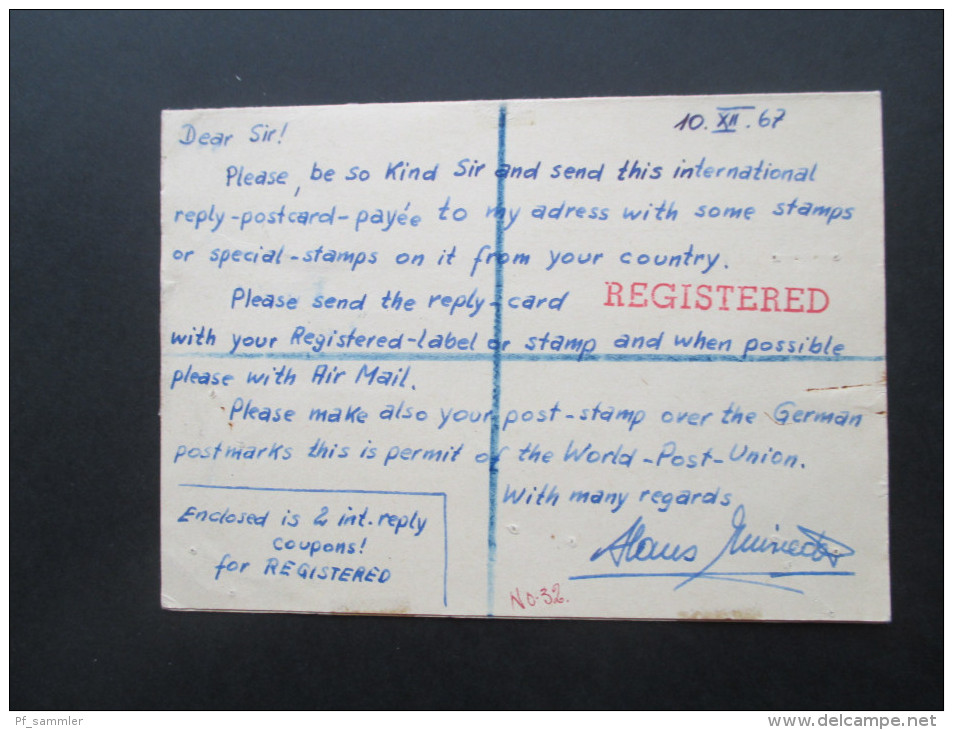 10. XII. 67
Dear Sir!
Please, be so Kind Sir and send this international
reply-postcard-payée to my adress with some stamps
or special-stamps on it from your country.
Please send the reply-card
REGISTERED
with your Registered-label or stamp and when possible
please with Air Mail.
Please make also your post-stamp over the German
postmarks this is permit of the World-Post-Union.
With many regards
Enclosed is 2 int. reply
coupons!
for REGISTERED
No. 32.
Pf_sammler
www.delcampe.net